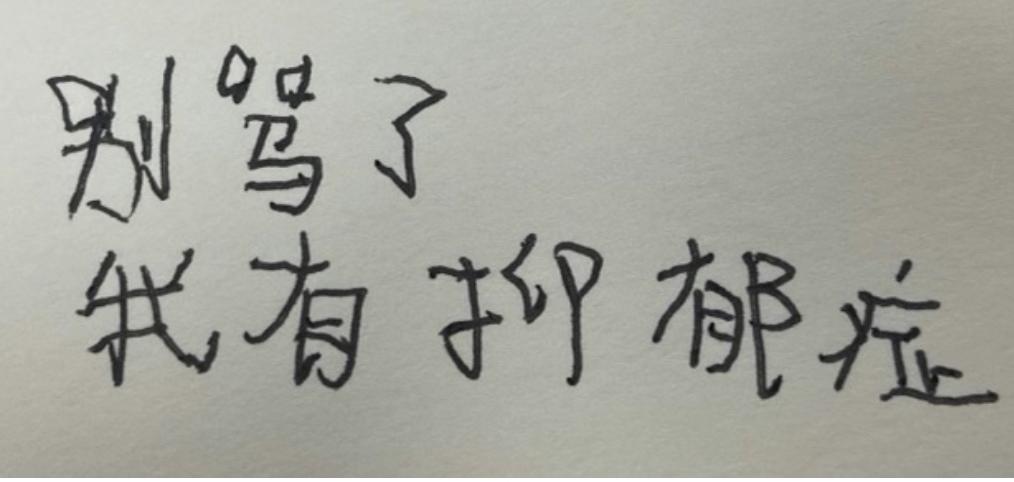 别骂了
我有抑郁症